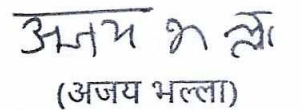 अजय भल्ला
(अजय भल्ला)